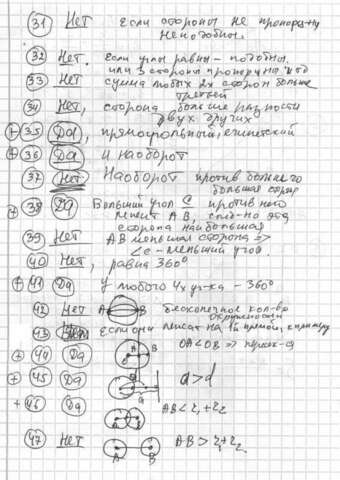 31 Нет если стороны не пропорц-ны
неподобны.
32 Нет. Если углы равны - подобны,
или 3 стороны пропорц-ны
33 Нет сумма любых 2х сторон больше
третьей
34 Нет, сторона больше разности
двух других
+ 35 Да, прямоугольный, египетский
+ 36 Да и наоборот
37 Нет Наоборот против большего
большая сторона
+ 38 Да Больший угол С против него
лежит АВ, след-но эта
сторона наибольшая
39 Нет АВ меньшая сторона =>
∠С - меньший угол.
40 Нет, равна 360°
+ 41 Да у любого 4х уг-ка - 360°
42 Нет А В бесконечное кол-во
окружностей
43 Если они лежат на 1й прямой, к примеру
+ 44 Да А В ОА<ОВ => перес-ся
+ 45 Да d>d
+ 46 Да АВ<r₁+r₂
47 Нет А В АВ>r₁+r₂